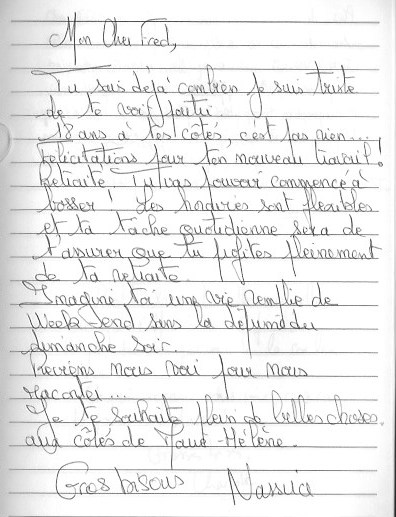 Mon Cher Fred,
Tu sais déjà combien je suis triste
de te voir partir.
18 ans à tes côtés, c'est pas rien...
Félicitations pour ton nouveau travail!
Retraité. Tu vas pouvoir commencé à
bosser! Les horaires sont flexibles
et ta tâche quotidienne sera de
t'assurer que tu profites pleinement
de ta retraite.
Imagine toi une vie remplie de
Week-end sans la déprime du
dimanche soir.
Reviens nous voir pour nous
raconter...
Je te souhaite plein de belles choses.
aux côtés de Marie-Hélène.
Gros bisous Nassira